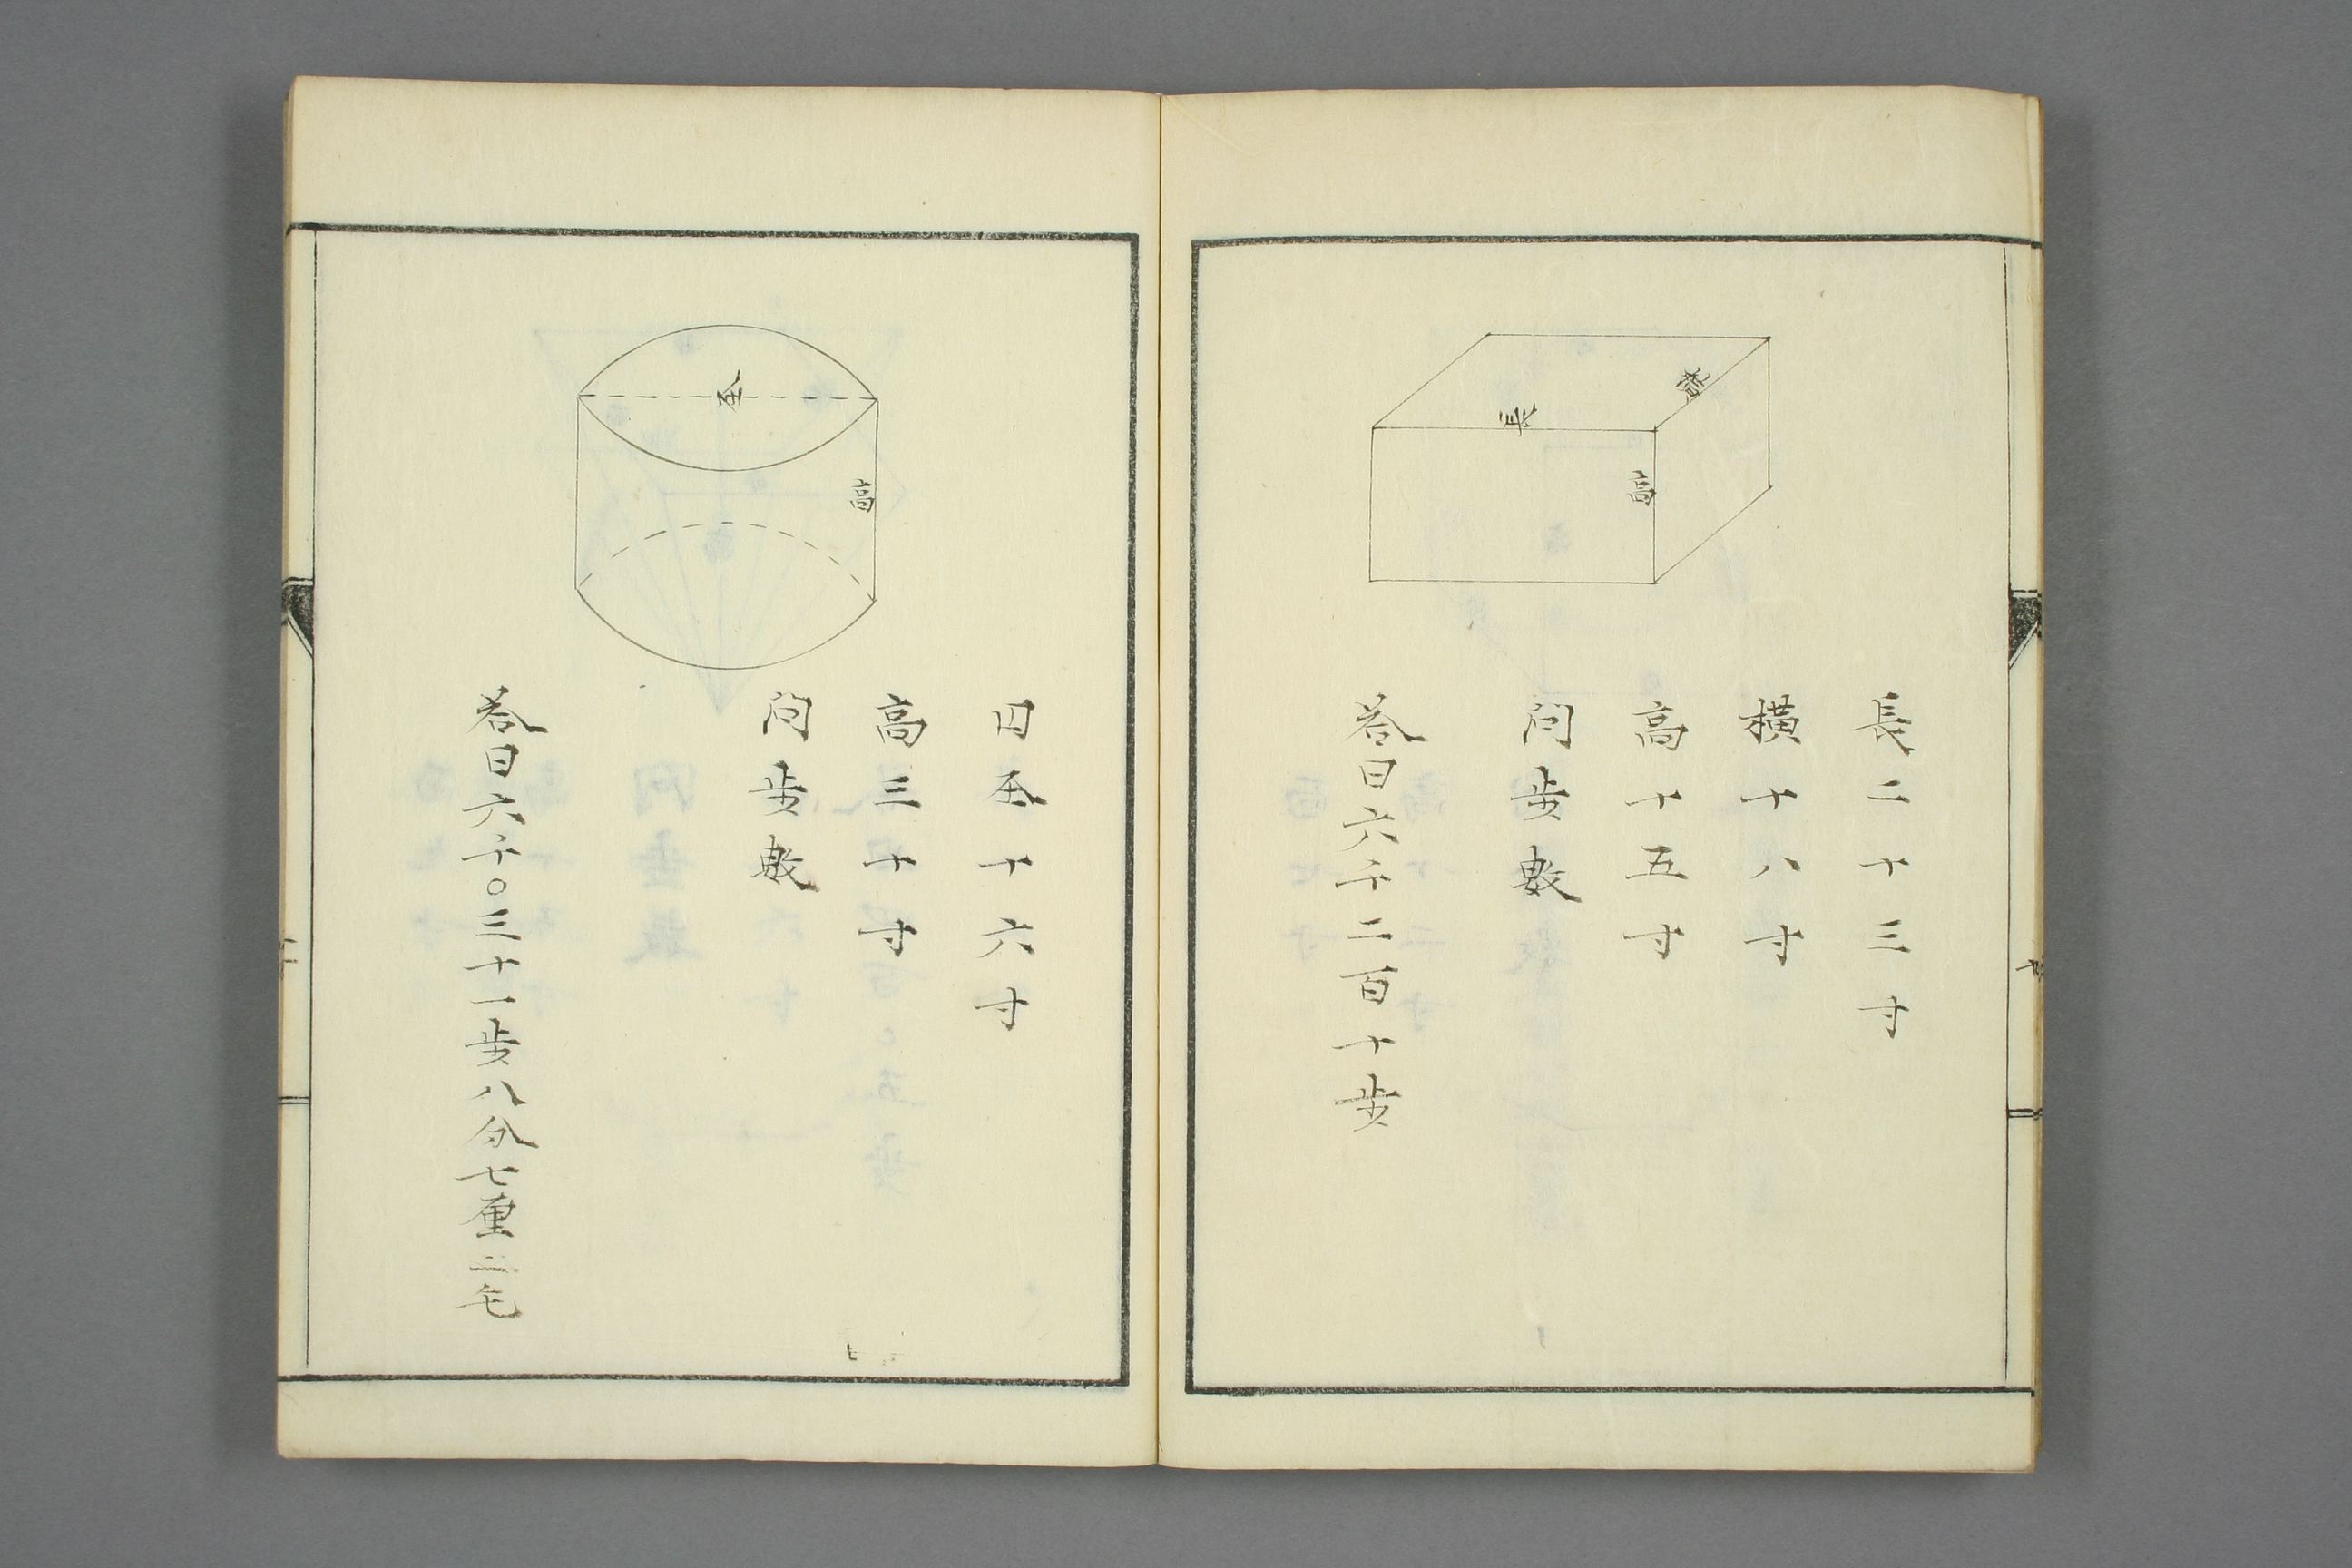 横
長
高
長二十三寸
横十八寸
高十五寸
问步数
答曰六千二百十步
径
高
円径十六寸
高三十寸
问步数
答曰六千〇三十一步八分七厘二毛